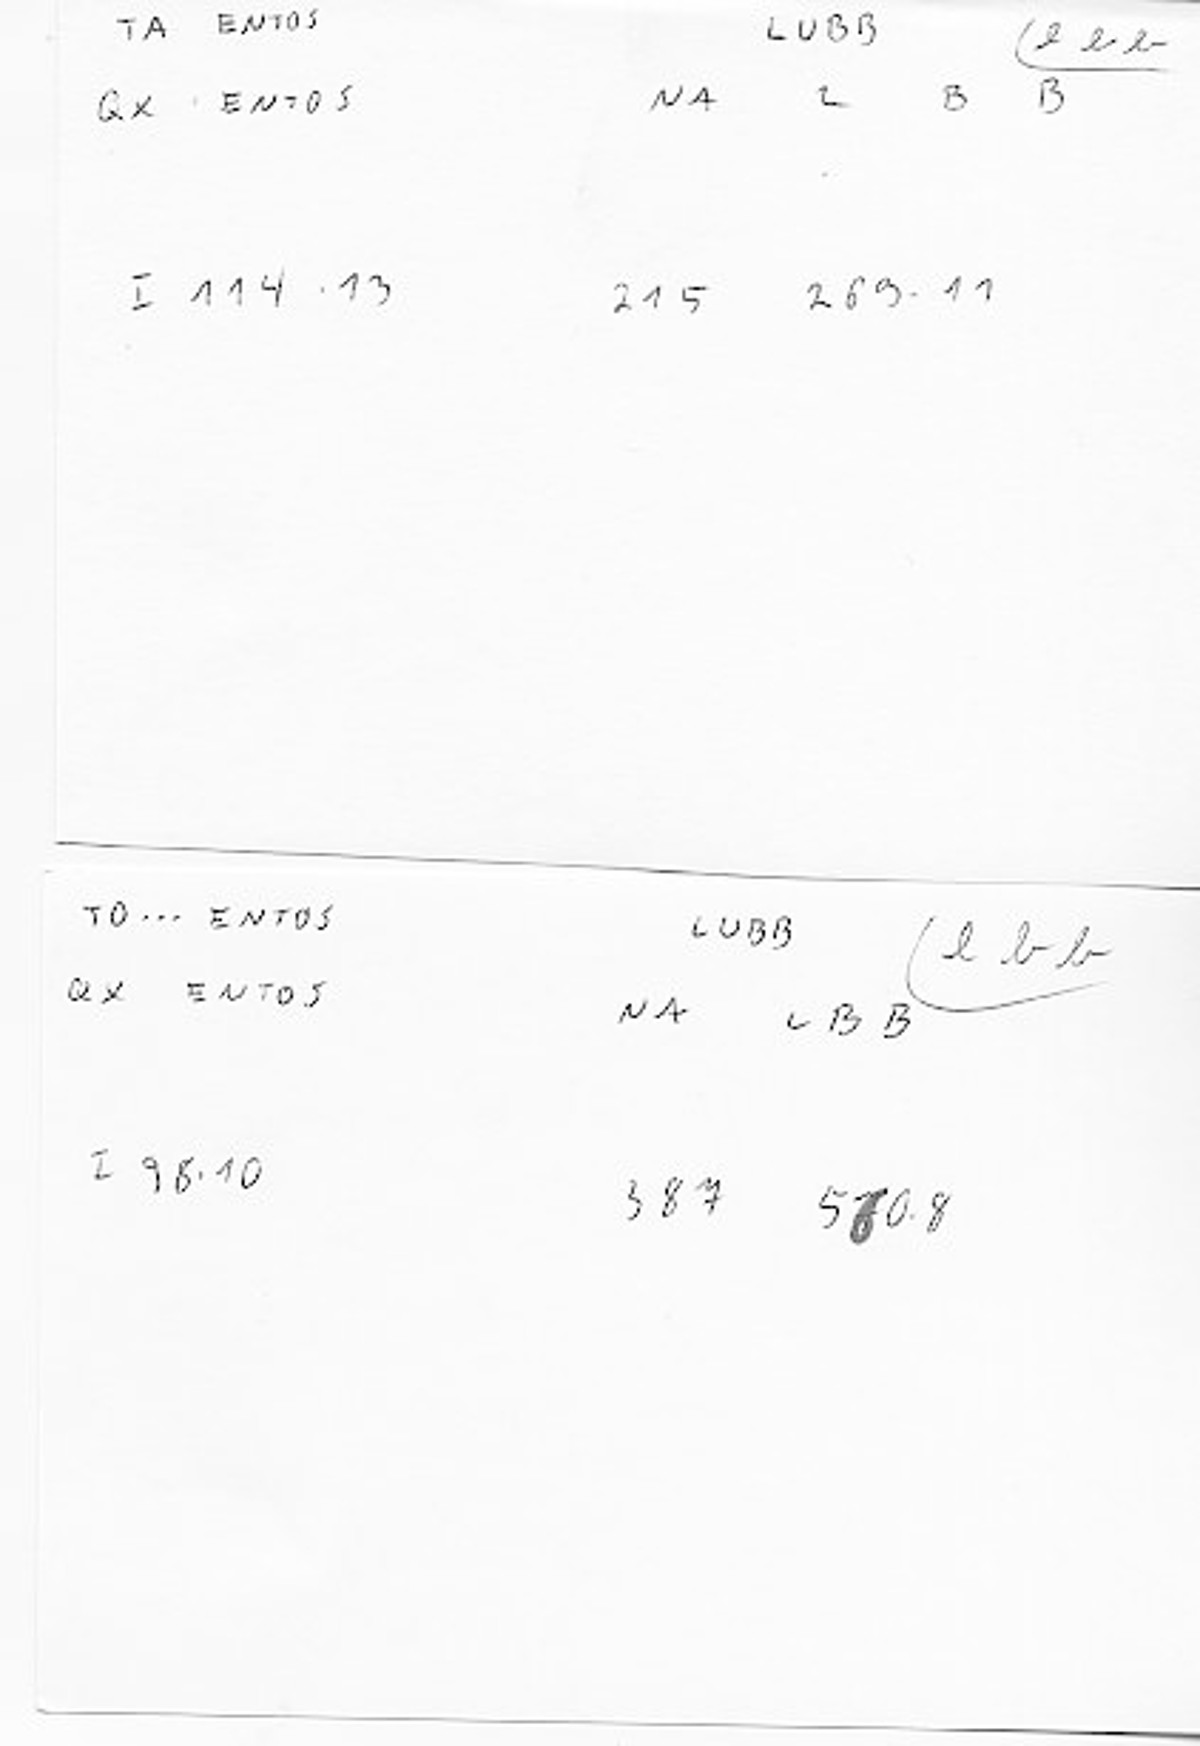 TA ENTOS LUBB (l b b
QX ENTOS NA L B B
I 114.13 215 269.11
TO... ENTOS LUBB (l b b
QX ENTOS NA L B B
I 98.10 387 5 0.8